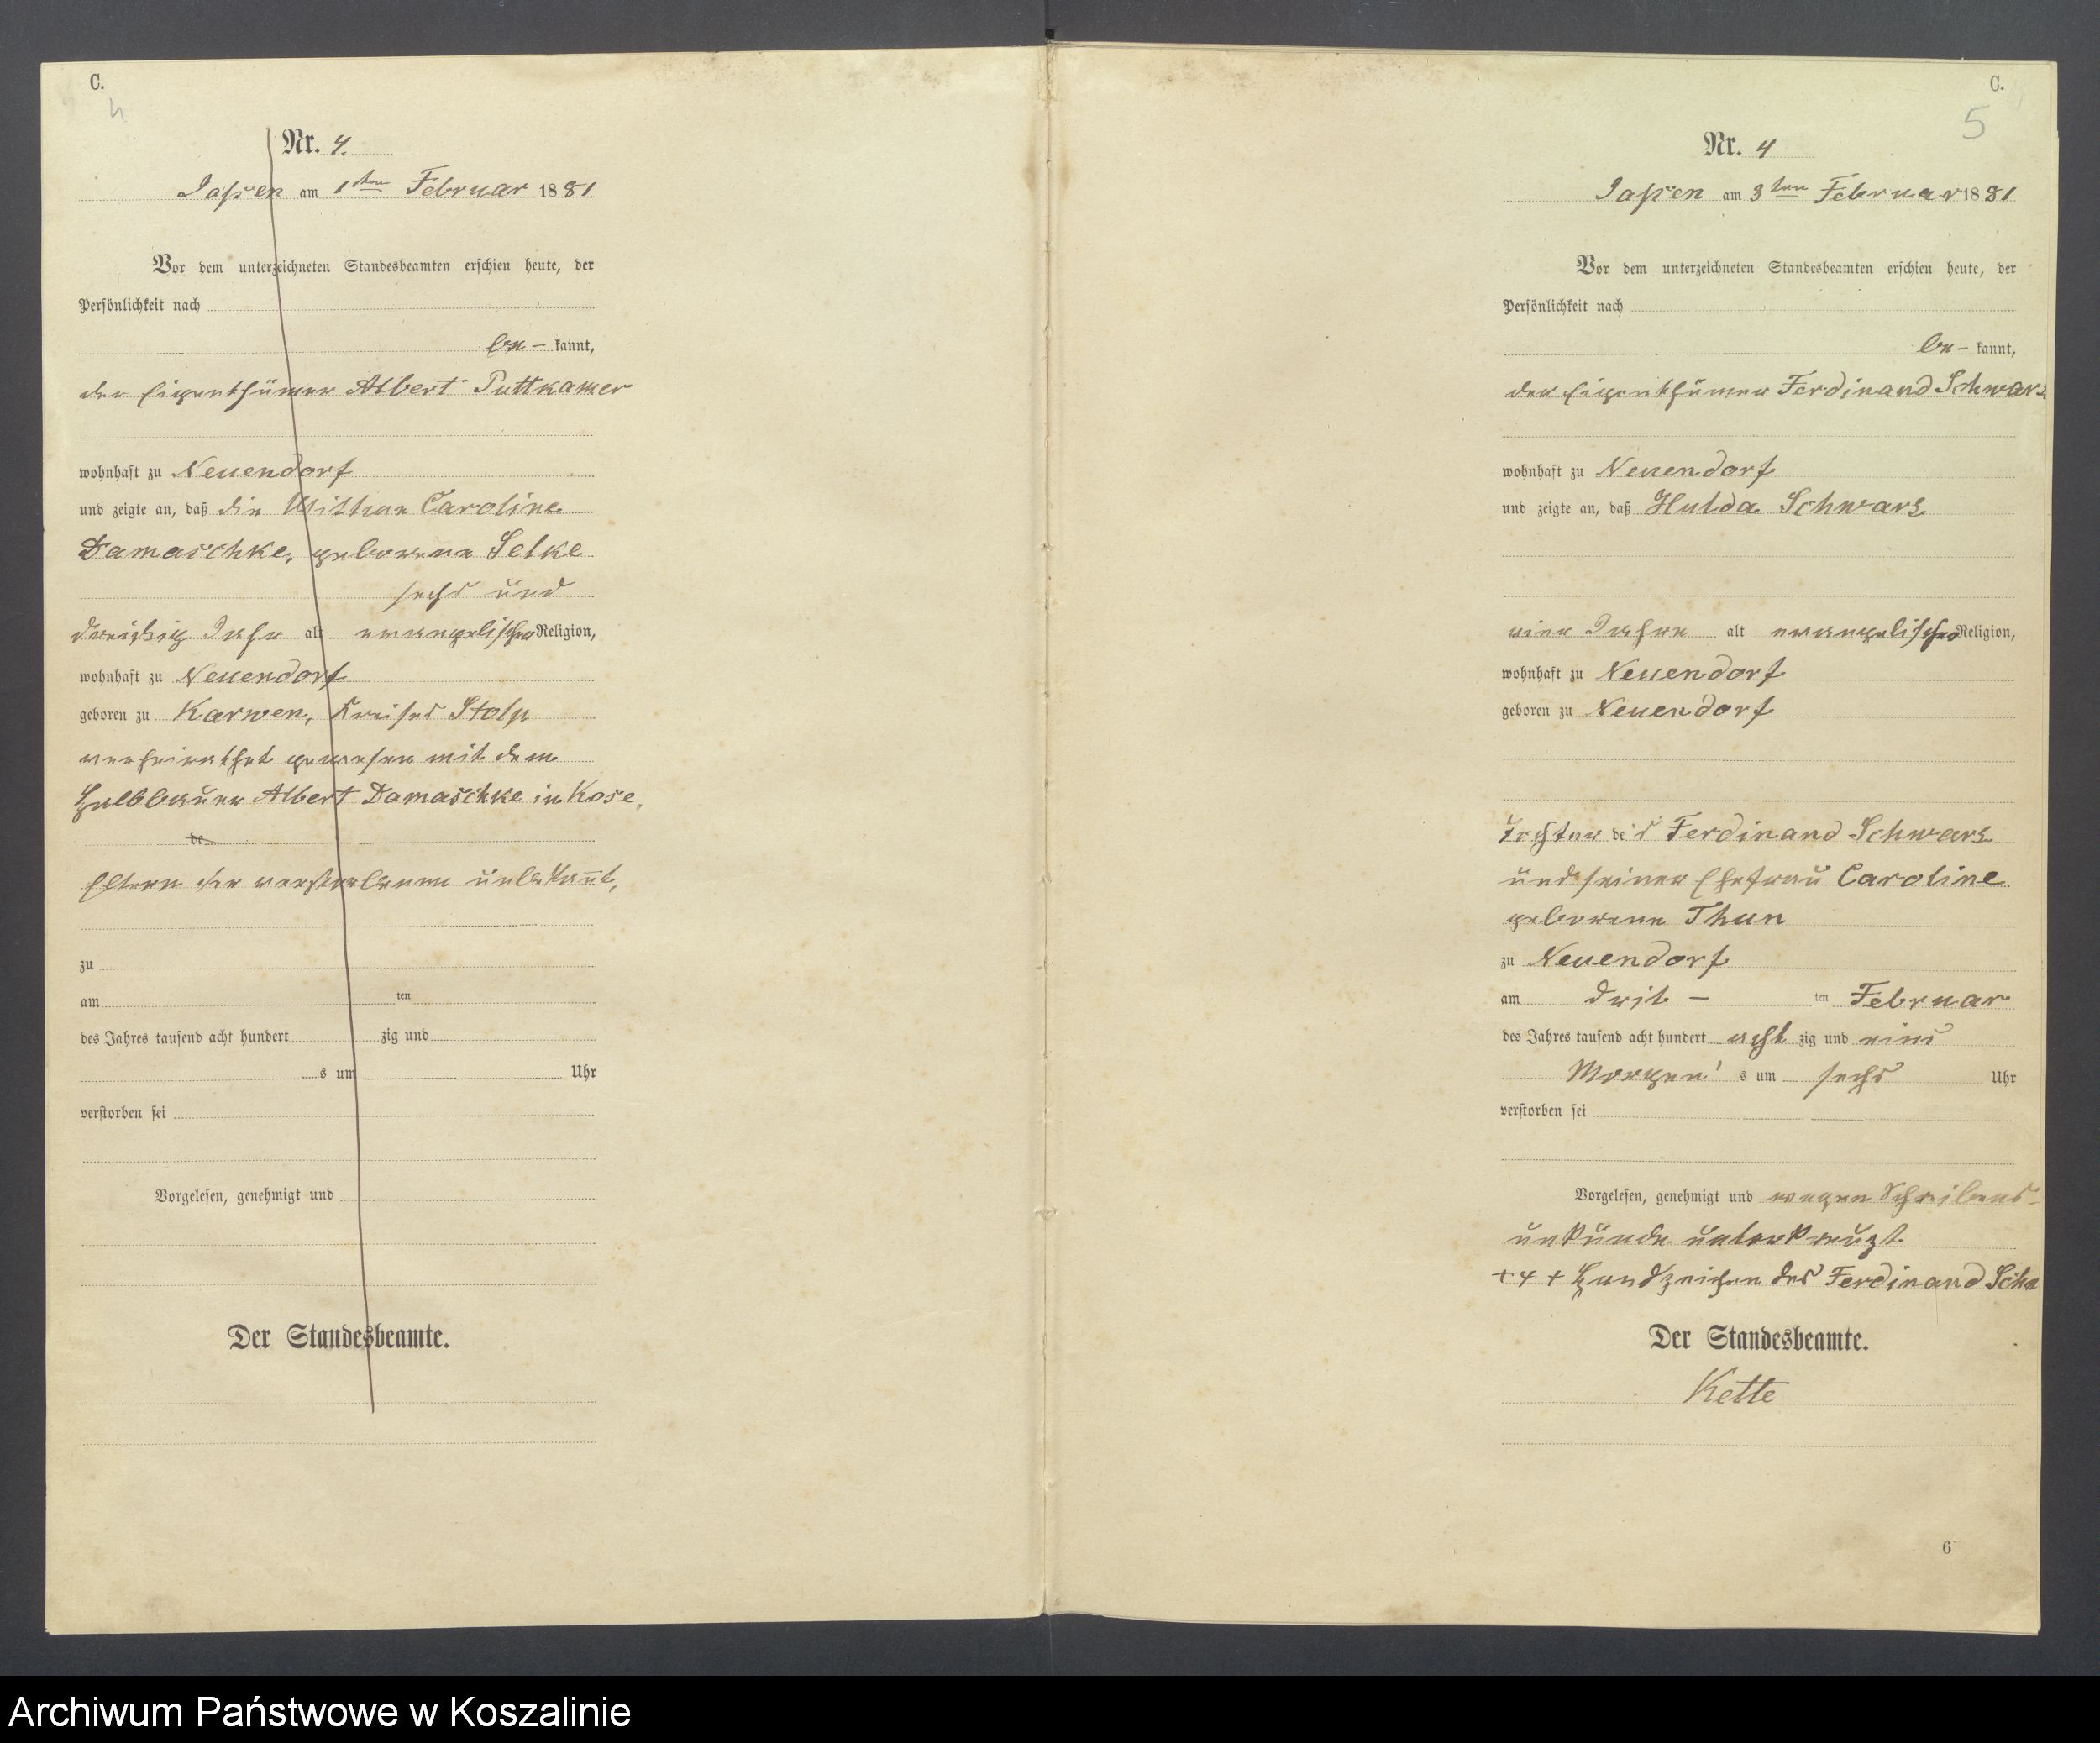 C.
4
Nr. 4.
Jassen am 1ten Februar 1881.
Vor dem unterzeichneten Standesbeamten erschien heute, der
Persönlichkeit nach
be- kannt,
der Eigenthümer Albert Puttkamer
wohnhaft zu Neuendorf
und zeigte an, daß die Wittwe Caroline
Damaschke, geborene Selke
sechs und
dreißig Jahr alt evangelischer Religion,
wohnhaft zu Neuendorf
geboren zu Karwen, Kreises Stolp
verheirathet gewesen mit dem
Halbbauer Albert Damaschke in Kose,
de
Eltern der verstorbenen unbekannt,
zu
am ten
des Jahres tausend acht hundert zig und
s um Uhr
verstorben sei
Vorgelesen, genehmigt und
Der Standesbeamte.
C.
5
Nr. 4
Jassen am 3ten Februar 1881
Vor dem unterzeichneten Standesbeamten erschien heute, der
Persönlichkeit nach
be- kannt,
der Eigenthümer Ferdinand Schwarz
wohnhaft zu Neuendorf
und zeigte an, daß Hulda Schwarz
vier Jahre alt evangelischer Religion,
wohnhaft zu Neuendorf
geboren zu Neuendorf
Tochter des Ferdinand Schwarz
und seiner Ehefrau Caroline
geborene Thun
zu Neuendorf
am drit - ten Februar
des Jahres tausend acht hundert acht zig und eins
Morgen's um sechs Uhr
verstorben sei
Vorgelesen, genehmigt und wegen Schreibens-
unkunde unterkreuzt
+ + + Handzeichen des Ferdinand Schw
Der Standesbeamte.
Kette
6
Archiwum Państwowe w Koszalinie